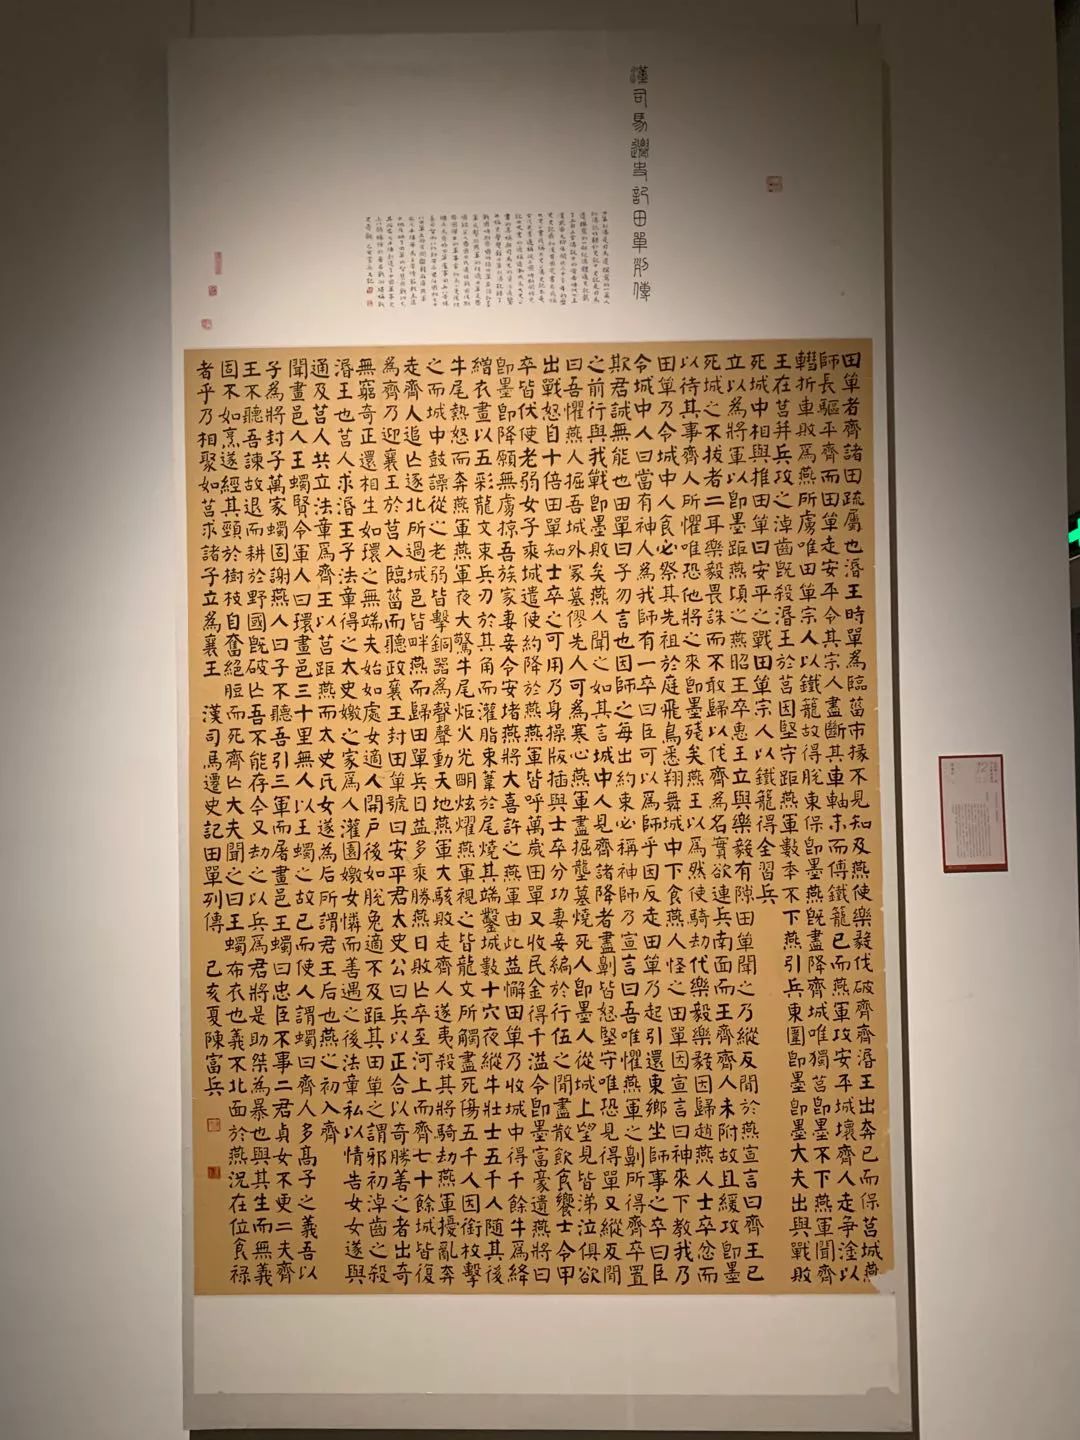 漢司馬遷史記田單列傳
田單者齊諸田疏屬也湣王時單為臨菑市掾不見知及燕使樂毅伐破齊齊湣王出奔已而保莒城燕
師長驅平齊而田單走安平令其宗人盡斷其車軸末而傅鐵籠已而燕軍攻安平城壞齊人走爭塗以
轊折車敗為燕所虜唯田單宗人以鐵籠故得脫東保即墨燕既盡降齊城唯獨莒即墨不下燕軍聞齊
王在莒并兵攻之淖齒既殺湣王於莒因堅守距燕軍數年不下燕引兵東圍即墨即墨大夫出與戰敗
死城中相與推田單曰安平之戰田單宗人以鐵籠得全習兵
立以為將軍以即墨距燕頃之燕昭王卒惠王立與樂毅有隙田單聞之乃縱反間於燕宣言曰齊王已
死城之不拔者二耳樂毅畏誅而不敢歸以伐齊為名實欲連兵南面而王齊齊人未附故且緩攻即墨
以待其事齊人所懼唯恐他將之來即墨殘矣燕王以為然使騎劫代樂毅樂毅因歸趙燕人士卒忿而
田單乃令城中人食必祭其先祖於庭飛鳥悉翔舞城中下食燕人怪之田單因宣言曰神來下教我乃
令城中人曰當有神人為我師有一卒曰臣可以為師乎因反走田單乃起引還東鄉坐師事之卒曰臣
欺君誠無能也田單曰子勿言也因師之每出約束必稱神師乃宣言曰吾唯懼燕軍之劓所得齊卒置
之前行與我戰即墨敗矣燕人聞之如其言城中人見齊諸降者盡劓皆怒堅守唯恐見得單又縱反間
曰吾懼燕人掘吾城外冢墓僇先人可為寒心燕軍盡掘壟墓燒死人即墨人從城上望見皆涕泣俱欲
出戰怒自十倍田單知士卒之可用乃身操版插與士卒分功妻妾編於行伍之間盡散飲食饗士令甲
卒皆伏使老弱女子乘城遣使約降於燕燕軍皆呼萬歲田單又收民金得千溢令即墨富豪遺燕將曰
即墨即降願無虜掠吾族家妻妾令安堵燕將大喜許之燕軍由此益懈田單乃收城中得千餘牛為絳
繒衣畫以五彩龍文束兵刃於其角而灌脂束葦於尾燒其端鑿城數十穴夜縱牛壯士五千人隨其後
牛尾熱怒而奔燕軍燕軍夜大驚牛尾炬火光明炫燿燕軍視之皆龍文所觸盡死傷五千人因銜枚擊
之而城中鼓譟從之老弱皆擊銅器為聲聲動天地燕軍大駭敗走齊人遂夷殺其將騎劫燕軍擾亂奔
走齊人追亡逐北所過城邑皆畔燕而歸田單兵日益多乘勝燕日敗亡卒至河上而齊七十餘城皆復
為齊乃迎襄王於莒入臨菑而聽政襄王封田單號曰安平君太史公曰兵以正合以奇勝善之者出奇
無窮奇正還相生如環之無端夫始如處女適人開戶後如脫兔適不及距其田單之謂邪初淖齒之殺
湣王也莒人求湣王子法章得之太史嬓之家為人灌園嬓女憐而善遇之後法章私以情告女女遂與
通及莒人共立法章為齊王以莒距燕而太史氏女遂為后所謂君王后也燕之初入齊
聞畫邑人王蠋賢令軍人曰環畫邑三十里無人以王蠋之故已而使人謂蠋曰齊人多高子之義吾以
子為將封子萬家蠋固謝燕人曰子不聽吾引三軍而屠畫邑王蠋曰忠臣不事二君貞女不更二夫齊
王不聽吾諫故退而耕於野國既破亡吾不能存今又劫之以兵為君將是助桀為暴也與其生而無義
固不如烹遂經其頸於樹枝自奮絕脰而死齊亡大夫聞之曰王蠋布衣也義不北面於燕況在位食祿
者乎乃相聚如莒求諸子立為襄王 漢司馬遷史記田單列傳 己亥夏陳富兵